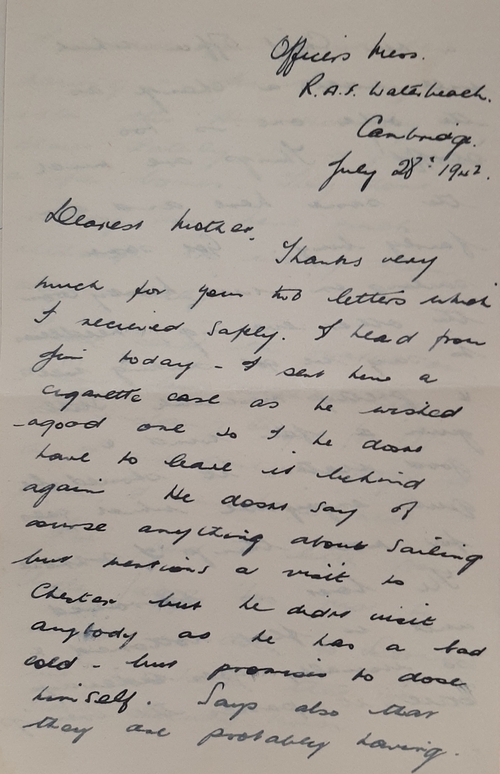 Officers Mess.
R.A.F. Waterbeach.
Cambridge.
July 28th 1942.
Dearest Mother,
Thanks very
much for your two letters which
I recieved safely. I heard from
Jim today - I sent him a
cigarette case as he wished
a good one so I he doesnt
have to leave it behind
again He doesnt say of
course anything about Sailing
but mentions a visit to
Chester but he didnt visit
anybody as he has a bad
cold - but promises to dose
himself. Says also that
they are probably having.